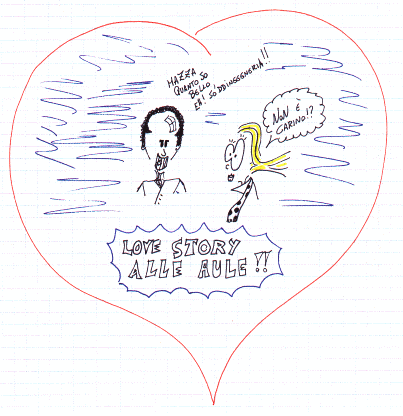 MAZZA
QUANTO SO
BELLO
EH! SO' DDINGEGNERIA!!
NON È
CARINO!?
LOVE STORY
ALLE AULE!!